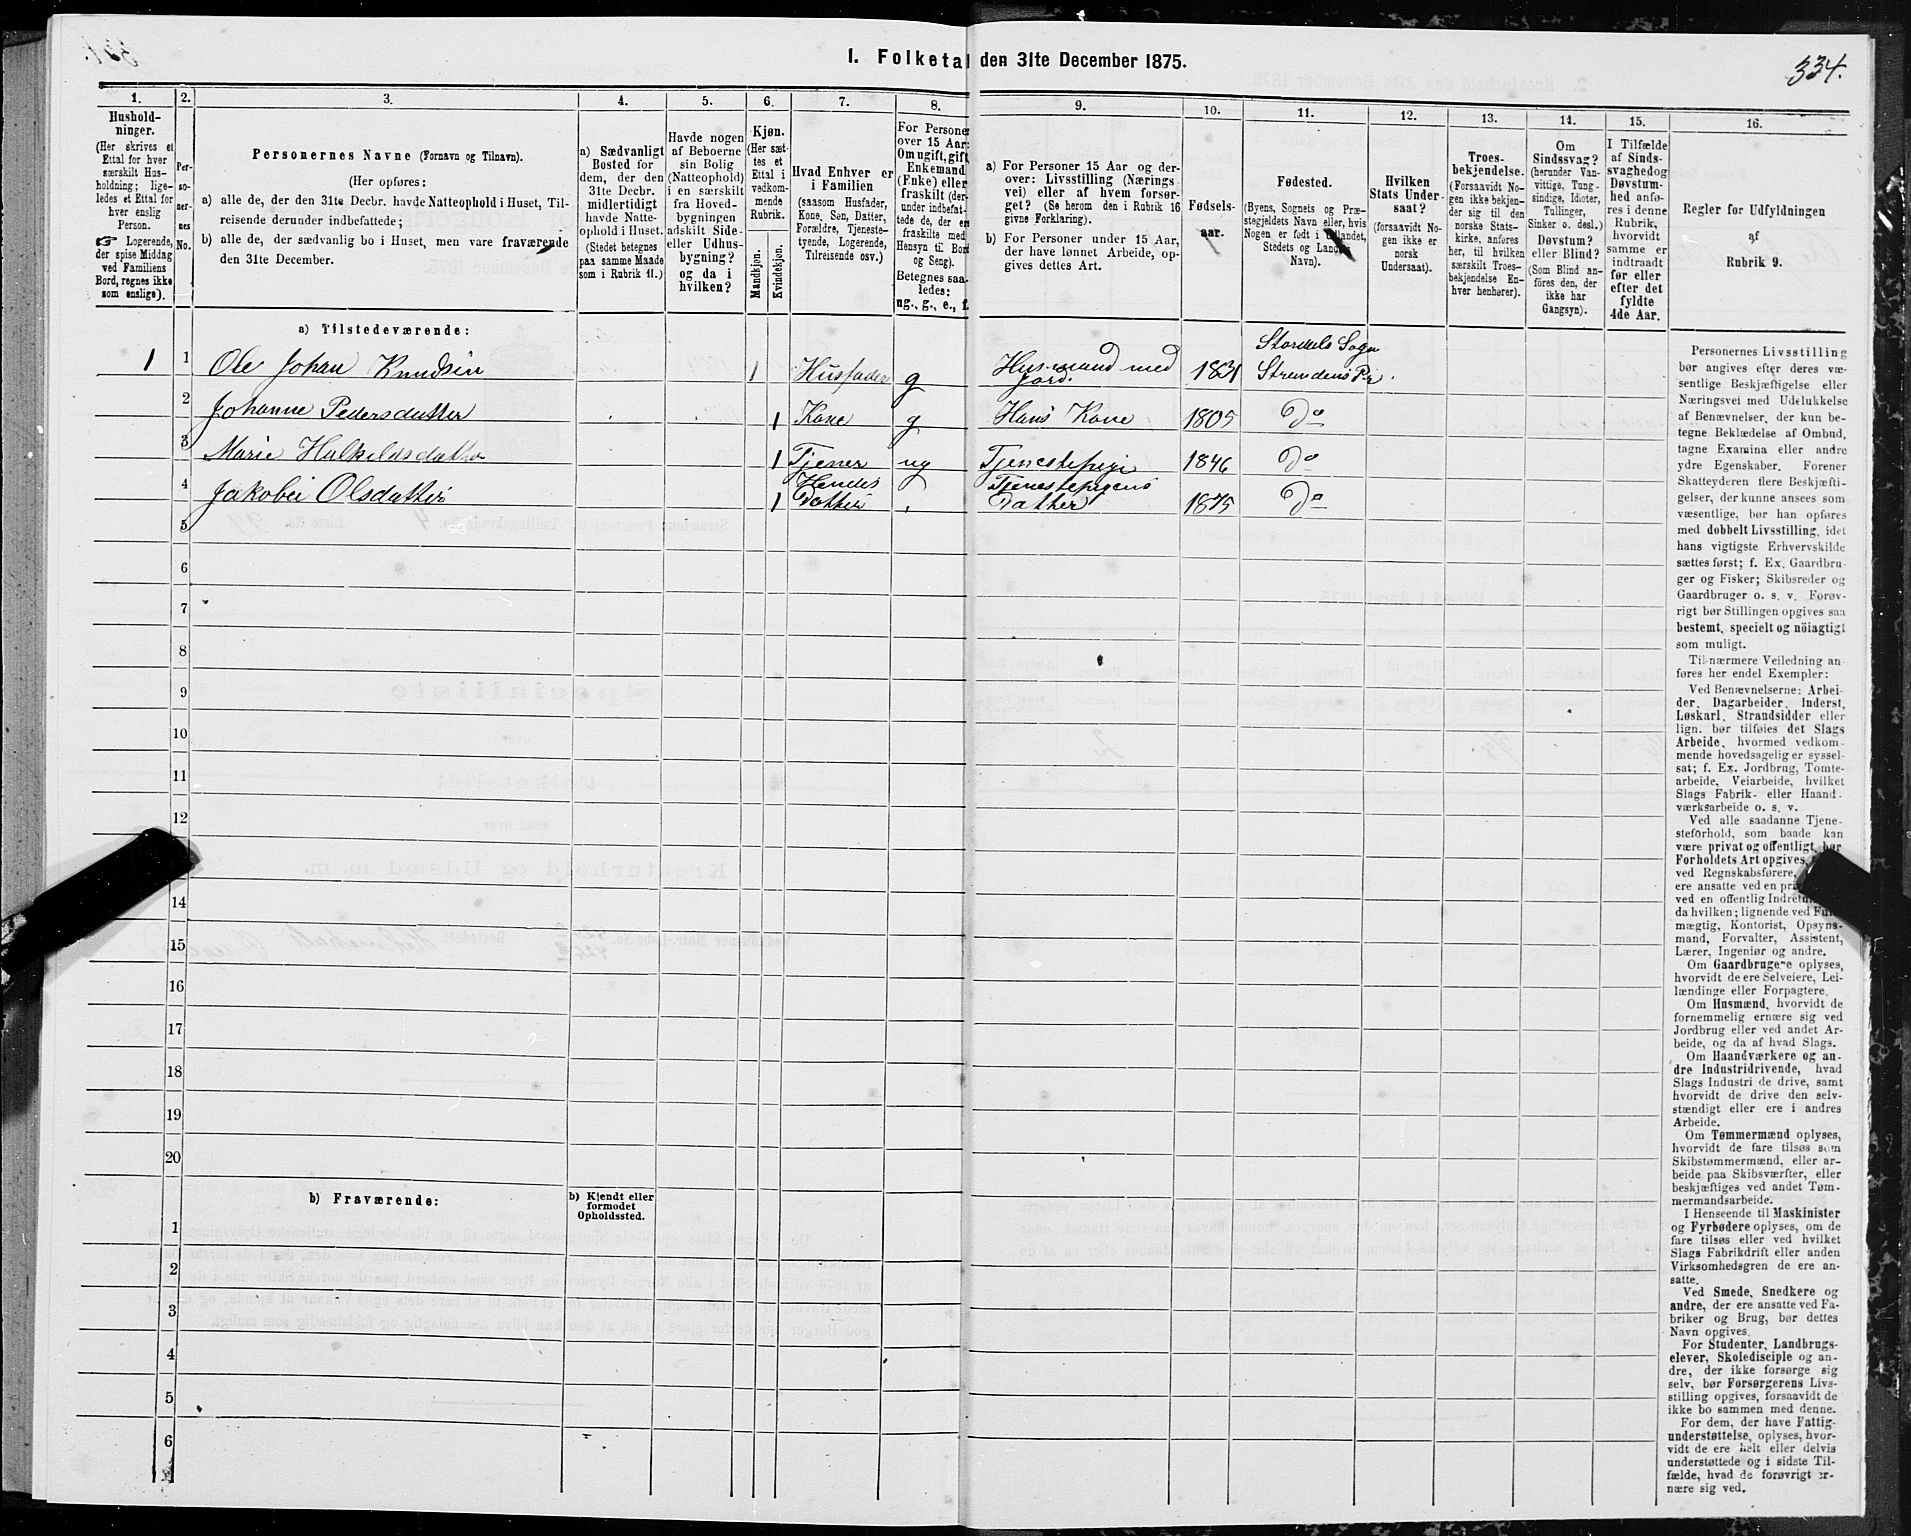 334.
1. Folketal den 31te December 1875.
1. 2. 3. 4. 5. 6. 7. 8. 9. 10. 11. 12. 13. 14. 15. 16.
Hushold-
ninger.
(Her skrives et
Ettal for hver
særskilt Hus-
holdning; lige-
ledes et Ettal for
hver enslig
Person.
☞ Logerende,
der spise Middag
ved Familiens
Bord, regnes ikke
som enslige).
Per-
so-
ner-
nes
No.
Personernes Navne (Fornavn og Tilnavn).
(Her opføres:
a) alle de, der den 31te Decbr. havde Natteophold i Huset, Til-
reisende derunder indbefattede;
b) alle de, der sædvanlig bo i Huset, men vare fraværende
den 31te December.
a) Sædvanligt
Bosted for
dem, der den
31te Decbr.
midlertidigt
havde Natte-
ophold i Huset.
(Stedet betegnes
paa samme Maade
som i Rubrik 11.)
Havde nogen
af Beboerne
sin Bolig
(Natteophold)
i en særskilt
fra Hoved-
bygningen
adskilt Side-
eller Udhus-
bygning?
og da i
hvilken?
Kjøn.
(Her sæt-
tes et
Ettal i
vedkom-
mende
Rubrik.
Mandkjøn.
Kvindekjøn.
Hvad Enhver er
i Familien
(saasom Husfader,
Kone, Søn, Datter,
Forældre, Tjeneste-
tyende, Logerende,
Tilreisende osv.)
For Personer
over 15 Aar:
Om ugift, gift,
Enkemand
(Enke) eller
fraskilt (der-
under indbefat-
tede de, der ere
fraskilte med
Hensyn til Bord
og Seng).
Betegnes saa-
ledes:
ug., g., e., f.
a) For Personer 15 Aar og der-
over: Livsstilling (Nærings-
vei) eller af hvem forsør-
get? (Se herom den i Rubrik 16
givne Forklaring).
b) For Personer under 15 Aar,
der have lønnet Arbeide, op-
gives dettes Art.
Fødsels-
aar.
Fødested.
(Byens, Sognets og Præ-
stegjeldets Navn eller, hvis
Nogen er født i Udlandet,
Stedets og Landets
Navn).
Hvilken
Stats Under-
saat?
(forsaavidt No-
gen ikke er
norsk
Undersaat).
Troes-
bekjendelse.
(Forsaavidt No-
gen ikke bekjen-
der sig til den
norske Stats-
kirke, anføres
her, til hvilken
særskilt Troes-
bekjendelse En-
hver henhører).
Om
Sindssvag?
(herunder Van-
vittige, Tung-
sindige, Idioter,
Tullinger,
Sinker o. desl.)
Døvstum?
eller Blind?
(Som Blind an-
føres den, der
ikke har
Gangsyn).
I Tilfælde
af Sinds-
svaghed og
Døvstum-
hed anfø-
res i denne
Rubrik,
hvorvidt
samme er
indtraadt
før eller
efter det
fyldte
4de Aar.
Regler før Udfyldningen
af
Rubrik 9.
a) Tilstedeværende:
1 1 Ole Johan Knudsen 1 Husfader g Husmand med Jord. 1831 Stordals Sogn Strandens Pr.
2 Johanne Pedersdatter 1 Kone g Hans Kone 1805 Do
3 Marie Halkildsdatter 1 Tjener ug Tjenestepige 1846 Do
4 Jakobei Olsdatter 1 Hendes Datter Tjenestepigens Datter 1875 Do
5
6
7
8
9
10
11
12
14
15
16
17
18
19
20
b) Fraværende:
b) Kjendt eller
formodet
Opholdssted.
1
2
3
4
5
6
Personernes Livsstilling
bør angives efter deres væ-
sentlige Beskjæftigelse eller
Næringsvei med Udelukkelse
af Benævnelser, der kun be-
tegne Beklædelse af Ombud,
tagne Examina eller andre
ydre Egenskaber. Forener
Skatteyderen flere Beskjæfti-
gelser, der kunne ansees som
væsentlige, bør han opføres
med dobbelt Livsstilling, idet
hans vigtigste Erhvervskilde
sættes først; f. Ex. Gaardbru-
ger og Fisker; Skibsreder og
Gaardbruger o. s. v. Forøv-
rigt bør Stillingen opgives saa
bestemt, specielt og nöiagtigt
som muligt.
Til nærmere Veiledning an-
føres her endel Exempler:
Ved Benævnelserne: Arbei-
der, Dagarbeider, Inderst,
Løskarl, Strandsidder eller
lign. bør tilføies det Slags
Arbeide, hvormed vedkom-
mende hovedsagelig er syssel-
sat; f. Ex. Jordbrug, Tomte-
arbeide, Veiarbeide, hvilket
Slags Fabrik- eller Haand-
værksarbeide o. s. v.
Ved alle saadanne Tjene-
steforhold, som baade kan
være privat og offentligt, bør
Forholdets Art opgives,
ved Regnskabsførere,
ere ansatte ved en
ved en offentlig
da hvilken; lignende ved
mægtig, Kontorist, Opsyns-
mand, Forvalter, Assistent,
Lærer, Ingeniør og andre.
Om Gaardbrugere oplyses,
hvorvidt de ere Selveiere, Lei-
lændinge eller Forpagtere.
Om Husmænd, hvorvidt de
fornemmelig ernære sig ved
Jordbrug eller ved andet Ar-
beide, og da af hvad Slags.
Om Haandværkere og an-
dre Industridrivende, hvad
Slags Industri de drive, samt
hvorvidt de drive den selv-
stændigt eller ere i andres
Arbeide.
Om Tømmermænd oplyses,
hvorvidt de fare tilsøs som
Skibstømmermænd, eller ar-
beide paa Skibsværfter, eller
beskjæftiges ved andet Tøm-
mermandsarbeide.
I Henseende til Maskinister
og Fyrbødere oplyses, om de
fare tilsøs eller ved hvilket
Slags Fabrikdrift eller anden
Virksomhedsgren de ere an-
satte.
Ved Smede, Snedkere og
andre, der ere ansatte ved Fa-
briker og Brug, bør dettes
Navn opgives.
For Studenter, Landbrugs-
elever, Skoledisciple og an-
dre, der ikke forsørge sig
selv, bør Forsørgerens Livs-
stilling opgives, forsaavidt de
ikke bo sammen med denne.
For dem, der have Fattig-
understøttelse, oplyses, hvor-
vidt de ere helt eller delvis
understøttede og i sidste Til-
fælde, hvad de forøvrigt er-
nære sig ved.